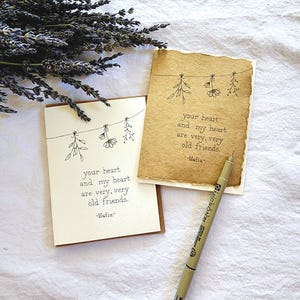 your heart
and my heart
are very, very
old friends.
-Hafiz-
your heart
and my heart
are very, very
old friends.
-Hafiz-